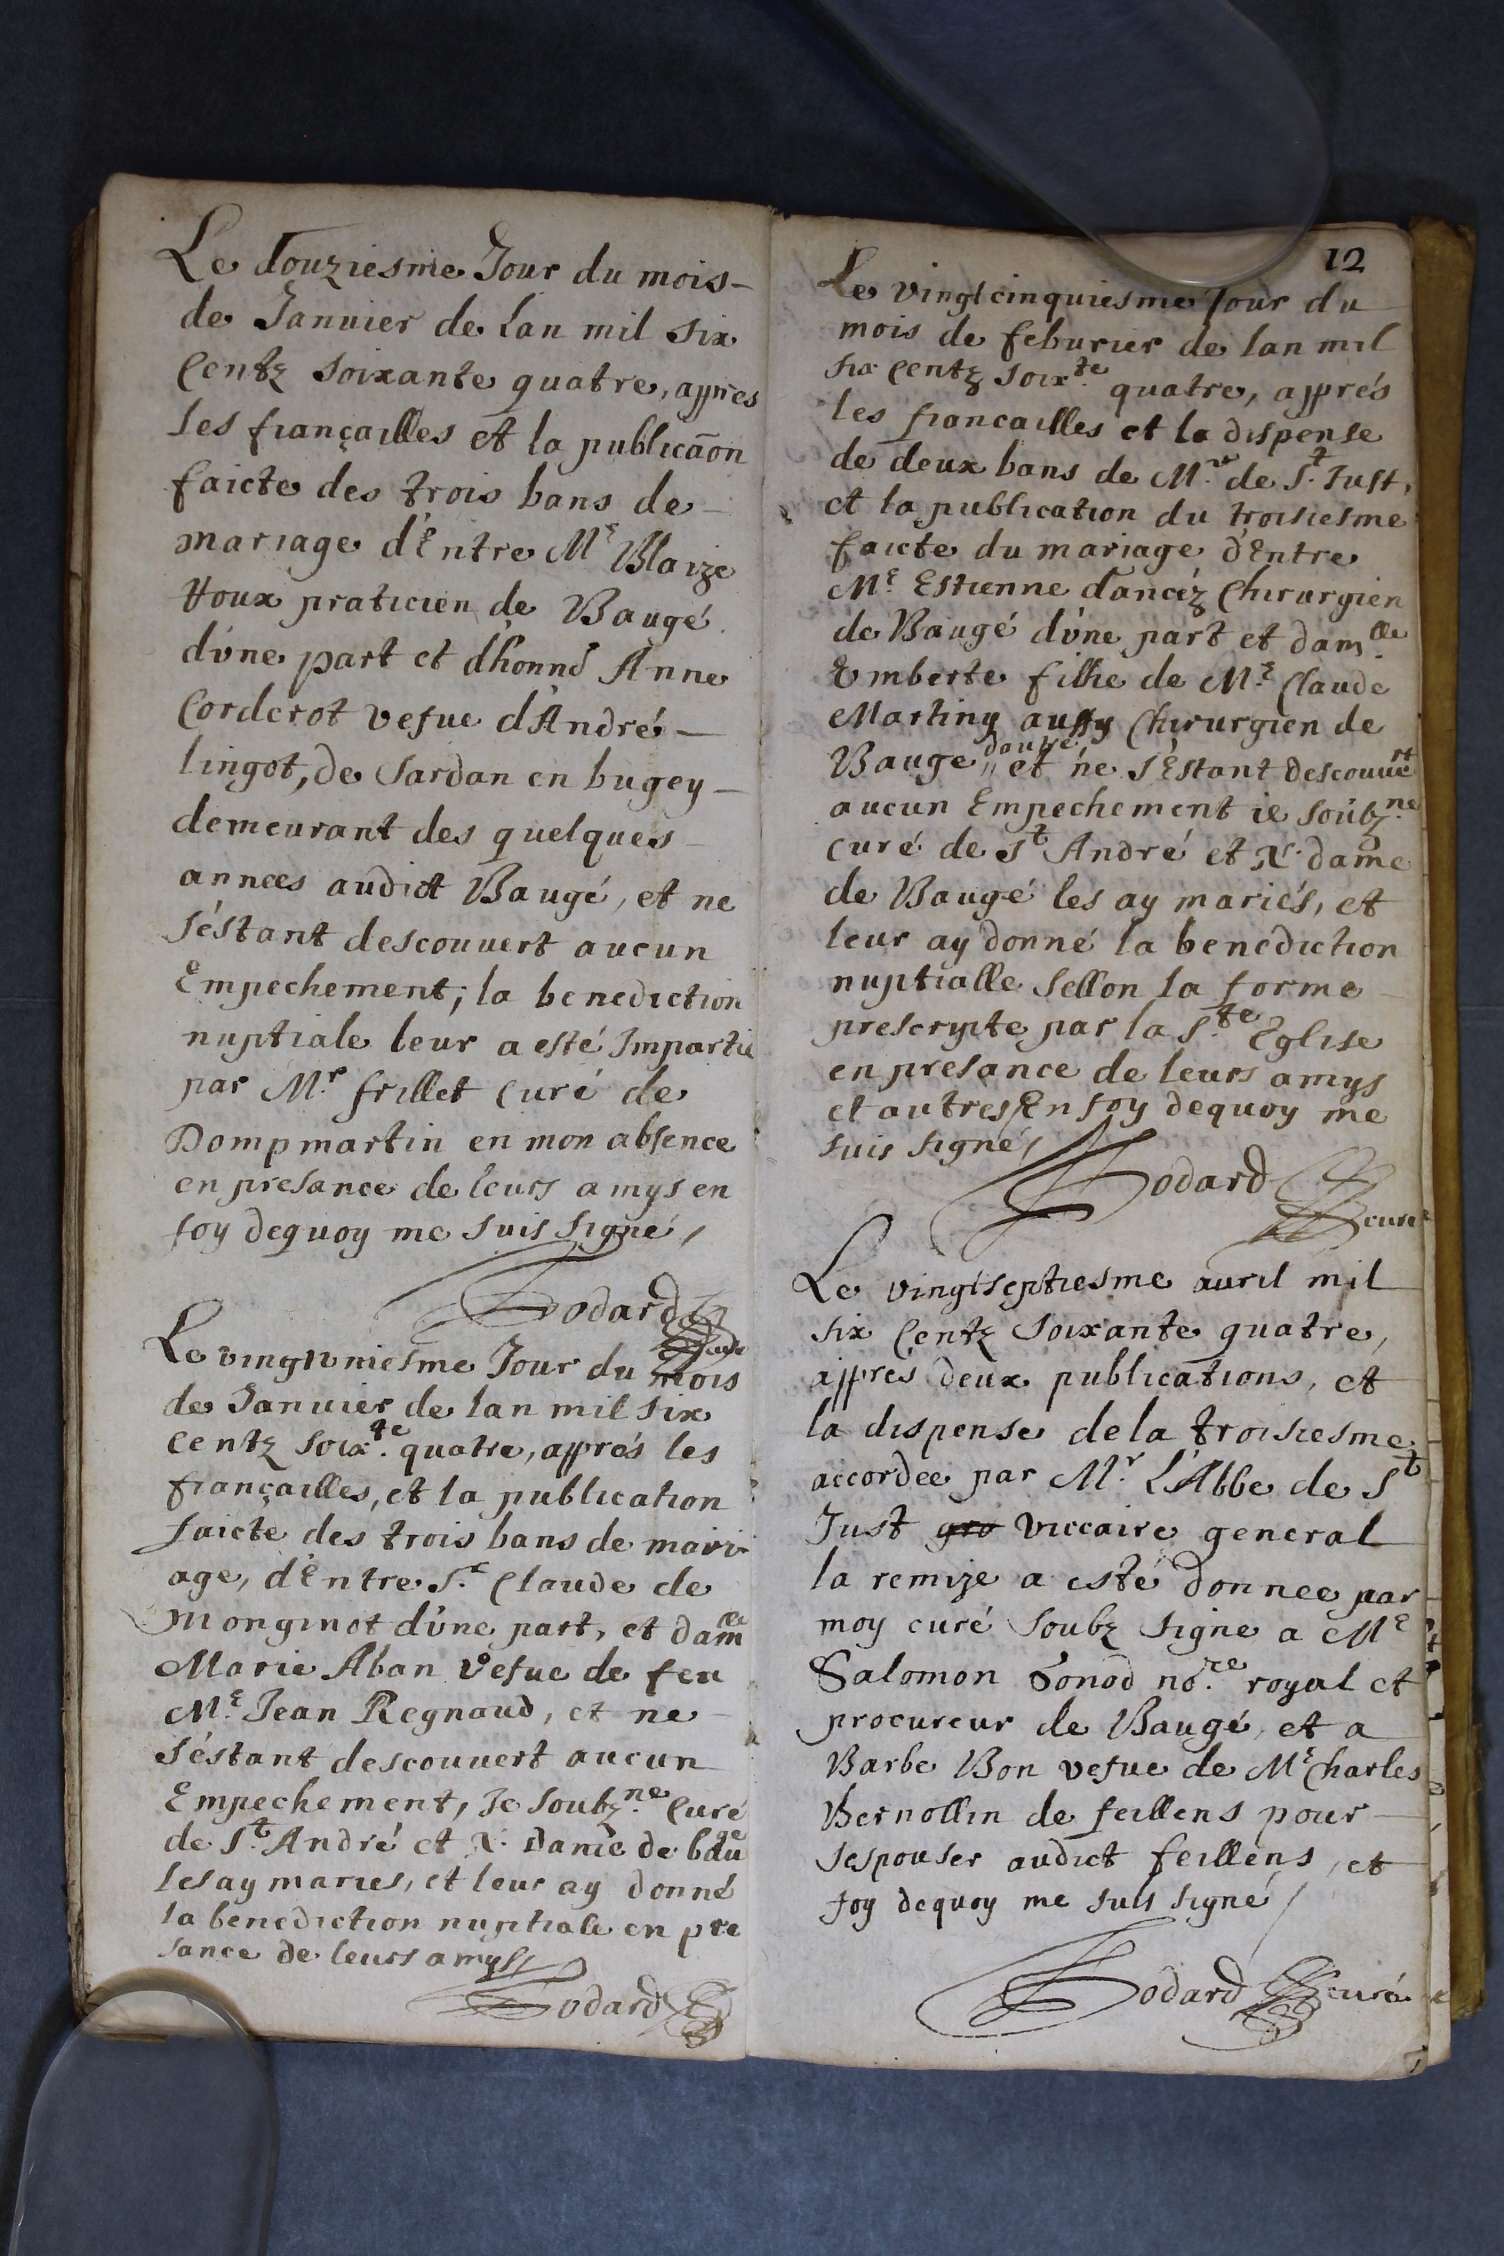 Le douziesme Jour du mois
de Januier de Lan mil six
Centz soixante quatre, appres
les fiançailles et la publicaõn
faicte des trois bans de
mariage d'Entre Me Blaize
Houx praticien de Baugé
d'vne part et d'honn Anne
Corderot vefue d'André
lingot, de Sardan en bugey
demeurant des quelques
annees audict Baugé, et ne
s'éstant descouuert aucun
Empechement; la benediction
nuptiale leur a esté Impartie
par Mr. frillet Curé de
Dompmartin en mon absence
en presance de leurs amys en
foy dequoy me suis signé,
Godard
Le vingtvniesme Jour du mois
de Januier de lan mil six
centz soixte. quatre, apprés les
fiançailles, et la publication
faicte des trois bans de mari
age, d'Entre Sr. Claude de
Monginot d'vne part, et damlle
Marie Aban vefue de feu
Me. Jean Regnaud, et ne
s'éstant descouuert aucun
Empechement, Je soubzne. Curé
de St. André et N. Dame de baugé
les ay mariés, et leur ay donné
la benediction nuptiale en pre
sance de leurs amys,
Godard
12
Le vingtcinquiesme Jour du
mois de feburier de lan mil
six Centz soixte. quatre, apprés
les fiancailles et la dispense
de deux bans de Mr. de St. Just,
et la publication du troisiesme
faicte du mariage d'Entre
Me. Estienne dancéz Chirurgien
de Baugé d'vne part et damlle.
Emberte fillie de Me. Claude
Martiny aussy Chirurgien de
Bauge dautre, et ne s'Estant descouuert
aucun Empechement ie soubzne.
curé de St André et N. dame
de Baugé les ay mariés, et
leur ay donné la benediction
nuptialle sellon la forme
prescripte par la Ste. Eglise
en presance de leurs amys
et autres, En foy dequoy me
suis signé,
Godard curé
Le vingtseptiesme auril mil
six Centz soixante quatre,
appres deux publications, et
la dispense de la troisiesme
accordee par Mr. L'Abbe de St
Just gra viccaire general
la remize a esté donnee par
moy curé soubz signe a Me
Salomon Gonod nore. royal et
procureur de Baugé, et a
Barbe Bon vefue de Me Charles
Bernollin de feillens pour
sespouser audict feillens, et
foy dequoy me suis signé,
Godard curé